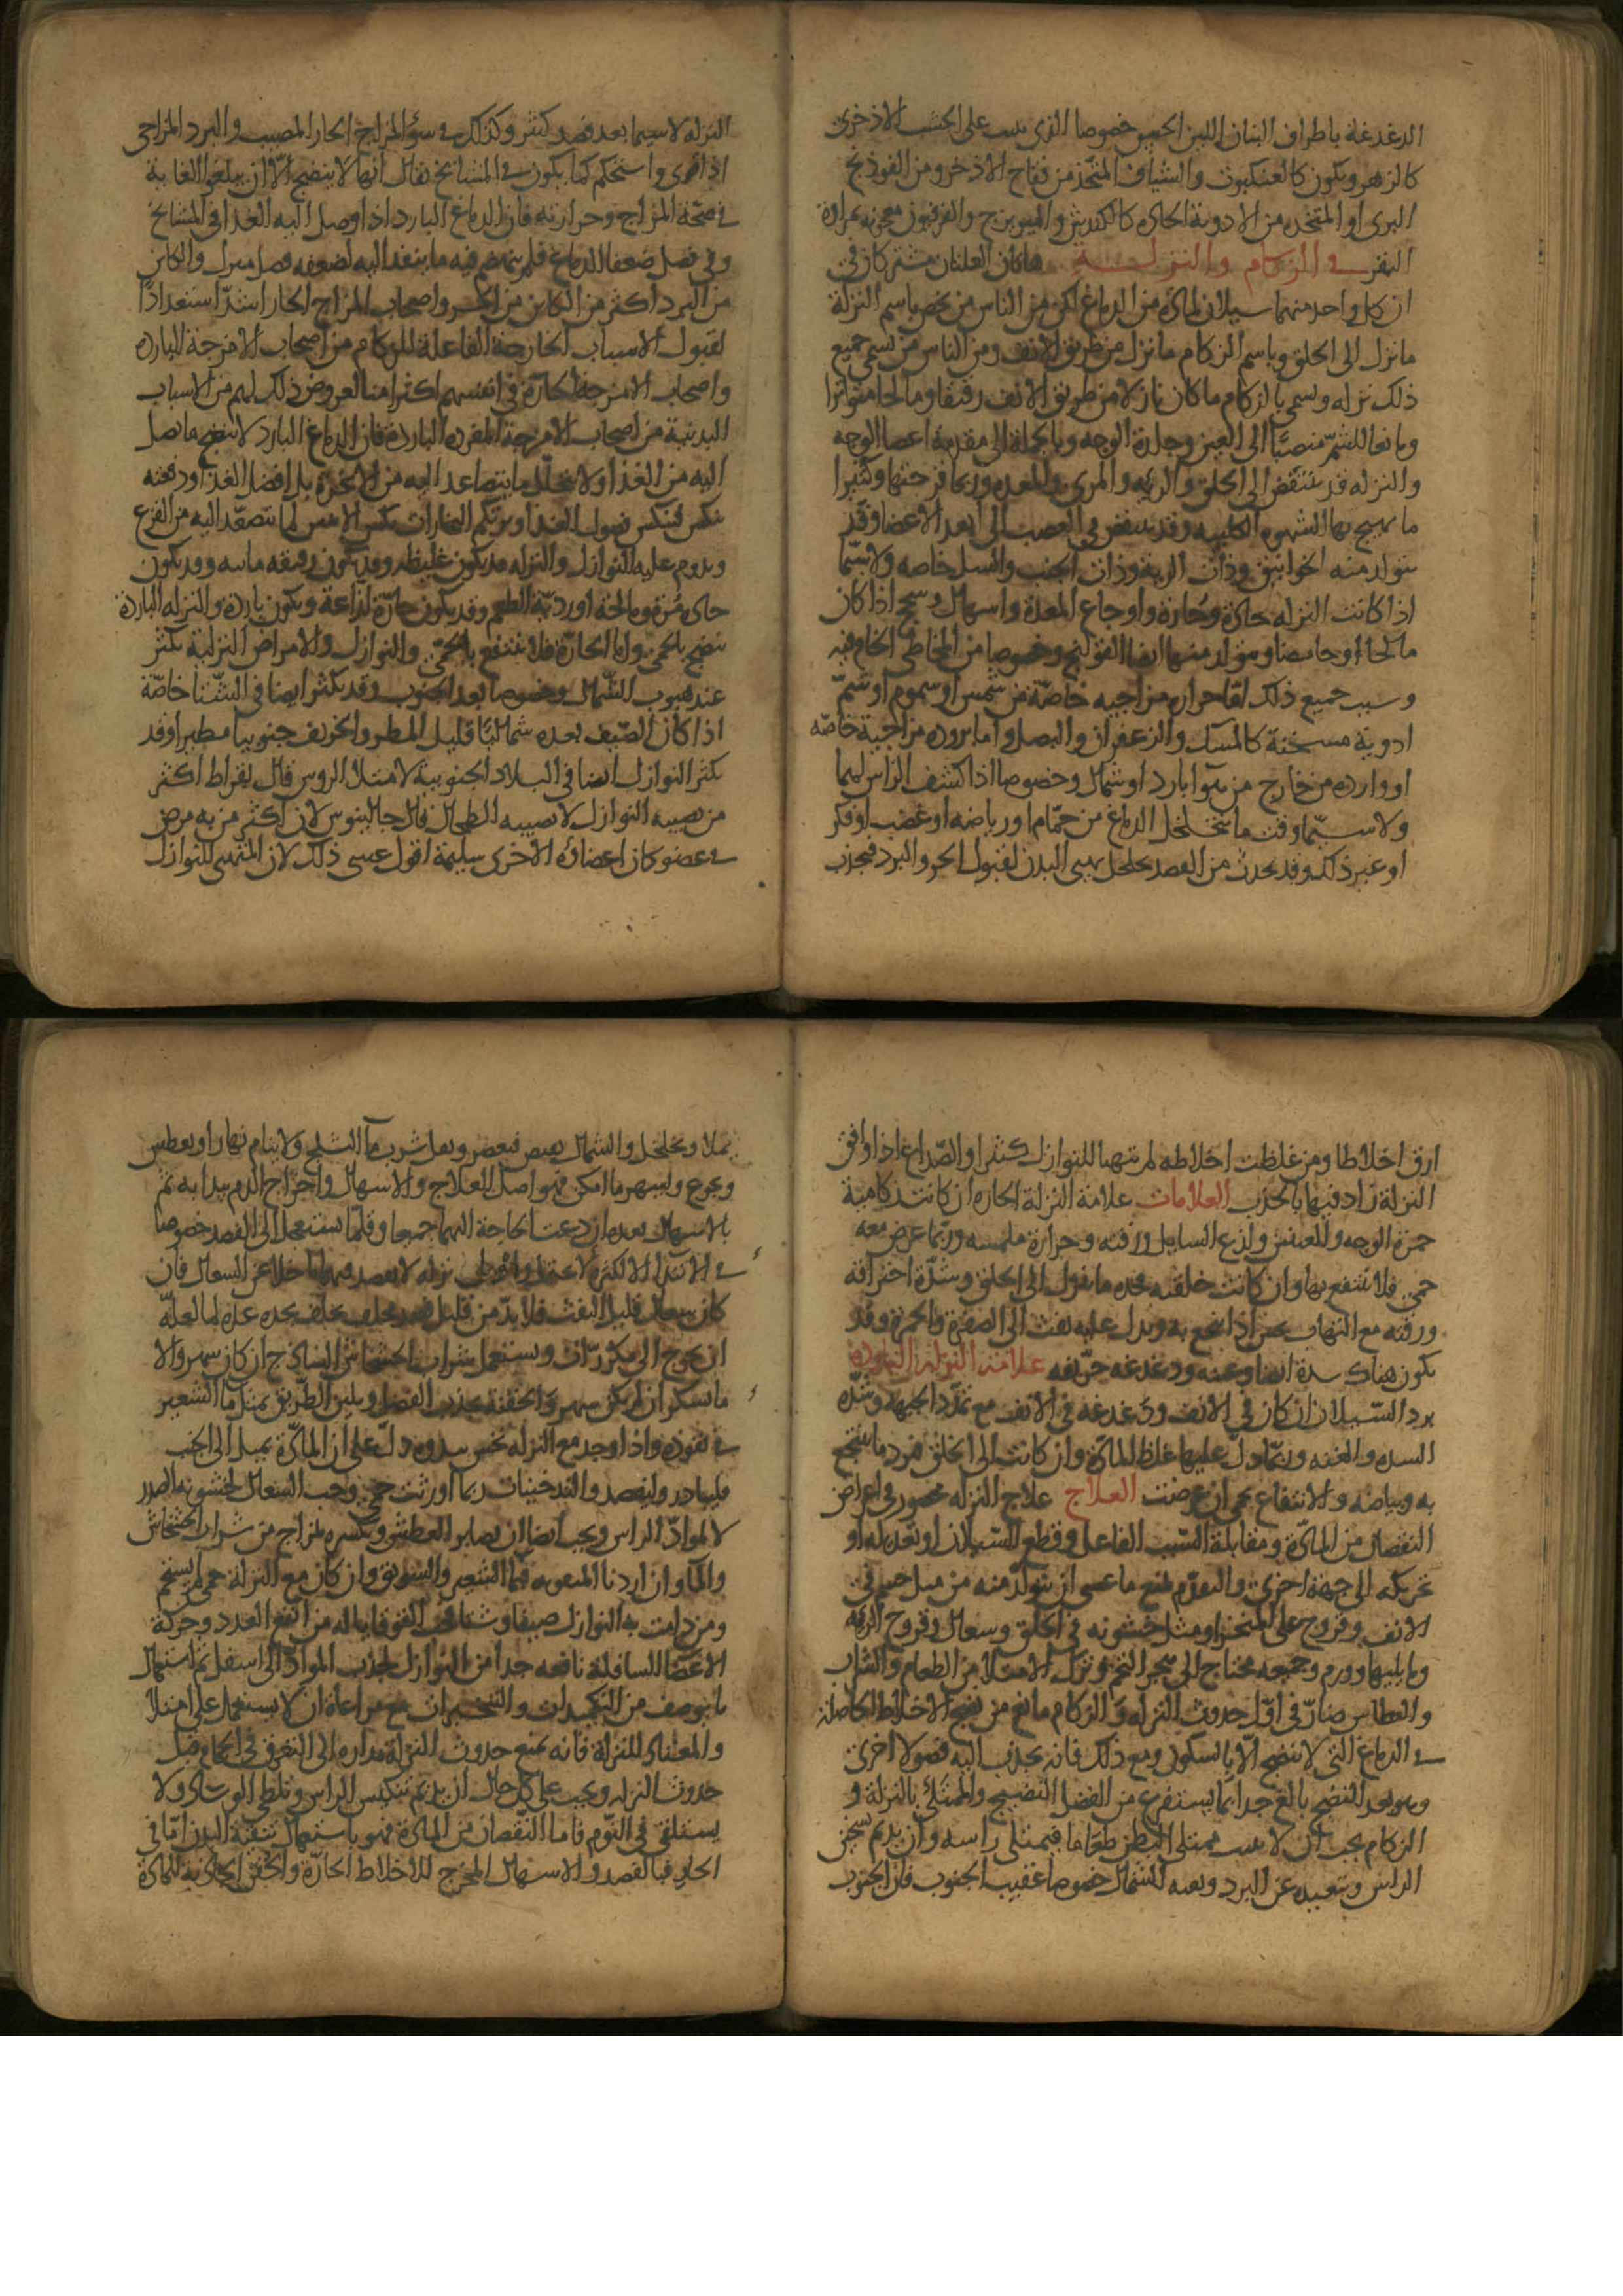 الدغدغة باطراف البنان اللين الجنبين خصوصا الذى ينبت على الخشب الاذخرى
كالزهر ويكون كالعنكبوت والشياف المتخذ من فقاح الاذخر ومن الفوذنج
البرى او المتخذه من الادوية الحاده كالكندس والميويزج والفربيون معجونه بمرارة
البقر فى الزكام والنزلة هاتان العلتان مشتركتان فى
ان كل واحد منهما سيلان المادة من الدماغ لكن من الناس من يخص باسم النزلة
ما نزل الى الحلق وباسم الزكام ما نزل من طريق الانف ومن الناس من يسمى جميع
ذلك نزله ويسمى بالزكام ما كان نازلا من طريق الانف رقيقا ومالحا متواترا
ومانعا للشم منصبا الى العين وجلدة الوجه وبالجملة الى مقدمة اعضا الوجه
والنزله قد تنتفض الى الحلق والريه والمرى والمعده وربما قرحتها وكثيرا
ما يهيج بها الشهوه الكلبيه وقد تنتفض فى العصب الى ابعد الاعضا وقد
يتولد منه الخوانيق وذات الرية وذات الجنب والسل خاصه ولا سيما
اذا كانت النزله حادة وحارة واوجاع المعدة واسهال وسحج اذا كان
مالحا او حامضا ويتولد منها ايضا القولنج وخصوصا من المخاطى الخام فيه
وسبب جميع ذلك اما حراره مزاجيه خاصة من شمس او سموم او شم
ادوية مسخنة كالمسك والزعفران والبصل واما بروده مزاجية خاصه
او وارده من خارج من هوا بارد او شمال وخصوصا اذا كشف الراس لهما
ولا سيما وقت ما يتخلخل الدماغ من حمام او رياضه او غضب او فكر
او غير ذلك وقد يحدث من الفصد تخلخل يهيى البدن لقبول الحر والبرد فيحدث
النزله لا سيما بعد فصد كثير وكذلك فى سؤ المزاج الحار المصيب والبرد المزاجى
اذا قوى واستحكم كما يكون فى المشايخ يقال انها لا ينضج الا ان يبلغوا الغاية
فى صحة المزاج وحرارته فان الدماغ البارد اذا وصل اليه الغذا فى المشايخ
وفى فصل ضعفا الدماغ فلم ينهضم فيه ما ينفذ اليه لضعفه فصل ونزل والكاين
من البرد اكثر من الكاين من الحر واصحاب المزاج الحار اشد استعدادا
لقبول الاسباب الخارجة الفاعلة للزكام من اصحاب الامزجة الباردة
واصحاب الامزجة الحارة فى انفسهم اكثر امنا لعروض ذلك لهم من الاسباب
البدنية من اصحاب الامزجة المفرده الباردة فان الدماغ البارد لا ينضج ما يصل
اليه من الغذا ولا يتحلل ما يتصاعد اليه من الابخرة بل افضل الغذا ودفعته
ينكس فينكس فضول الغذا ويرتكم البخارات نكس الانبيق لما يتصعد اليه من القرع
ويدوم عليه النوازل والنزله قد تكون غليظه وقد تكون رقيقه مائيه وقد تكون
حاره مرة ومالحة او رديه الطعم وقد يكون حارة لذاعة ويكون بارده والنزله الباردة
تنضج بالحمى واما الحارة فلا تنتفع بالحمى والنوازل والامراض النزلية تكثر
عند هبوب الشمال وخصوصا بعد الجنوب وقد يكثر ايضا فى الشتا خاصة
اذا كان الصيف بعده شماليا قليل المطر والخريف جنوبيا مطيرا وقد
تكثر النوازل ايضا فى البلاد الجنوبية لامتلا الروس قال بقراط اكثر
من تصيبه النوازل لا يصيبه الطحال قال جالينوس لان اكثر من به مرض
فى عضو كان اعضاؤه الاخرى سليمة اقول عسى ذلك لان المتهيى للنوازل
ارق اخلاطا ومن غلظت اخلاطه لم يتهيا للنوازل كثيرا والصداع اذا وافق
النزلة زاد فيها بالجذب العلامات علامة النزلة الحاره ان كانت زكامية
حمرة الوجه والعينين ولذع السايل ورقته وحرارة ملمسه وربما عرض معه
حمى فلا ينتفع بها وان كانت حلقيه حده ما ينزل الى الحلق وشدة احتراقه
ورقته مع التهاب يحس اذا تنخع به ويدل عليه نفث الى الصفرة والحمرة وقد
يكون هناك سدة ايضا وغنه ودغدغه حريفه علامة النزلة البارده
برد السيلان ان كان فى الانف ودغدغه فى الانف مع تمدد الجبهه وشدة
السده والغنه وربما دل عليها غلظ المادة وان كانت الى الحلق فبرد ما يتنخع
به وبياضه والانتفاع بحمى ان عرضت العلاج علاج النزله محصور فى اغراض
النقصان من المادة ومقابلة السبب الفاعل وقطع السيلان او تعديله او
تحريكه الى جهة اخرى والتقدم بمنع ما عسى ان يتولد منه من مثل خشم فى
الانف وقروح على المنخر او مثل خشونه فى الحلق وسعال وقروح الريه
وما يليها وورم وجميعه محتاج الى هجر التخم وترك الامتلا من الطعام والشراب
والعطاس ضار فى اول حدوث النزله والزكام مانع من نضج الاخلاط الحاصلة
فى الدماغ التى لا ينضج الا بالسكون ومع ذلك فانه يجذب اليه فضولا اخرى
وهو بعد النضج بالغ جدا بما يستفرغ من الفضل النضيج والمبتلى بالنزلة و
الزكام يجب ان لا يبيت ممتلى البطن طعاما فيمتلى راسه وان يديم تسخين
الراس وتبعيده عن البرد وبعيه الشمال خصوصا عقيب الجنوب فان الجنوب
يملا ويخلخل والشمال يقبض فيعصر ويقل شرب ما الثلج ولا ينام نهارا ويعطش
ويجوع ويسهر ما امكن فهو اصل العلاج والاسهال واخراج الدم يبدا به ثم
بالاسهال بعده ان دعت الحاجة اليهما جميعا وقلما يستعجل الى الفصد خصوصا
فى الابتدا الا لكثرة لا تحتمل نزله لا يفصد فيها ما خلا عن السعال فان
كان سعال قليل النفث فلا بد من قليل فصد
ان يحوج الى تكرر ويستعمل شراب الخشخاش الساذج ان كان سهر والا
ما بسكر ان لم يكن سهر والحقنة تجذب الفضل ويلين الطريق بمثل ما الشعير
فى نفوذه واذا وجد مع النزله نخس بدره دل على ان المادة تميل الى الجنب
فليبادر وليفصد والتدخينات ربما اورثت حمى وجب السعال لخشونه الصدر
لا لمواد الراس ويجب ايضا ان يصابر العطش ويكسره بمزاج من شراب الخشخاش
والما وان اردنا المتقويه فما الشعير والسويق وان كان مع النزلة حمى لم يستحم
ومن دامت به النوازل صيفا وشتا فحب القوقايا له من انفع العدد وحركة
الاعضا السافلة نافعه جدا من النوازل لجذب المواد الى اسفل ثم استعمال
ما يوصف من التكميدات والتبخيرات مع مراعاة ان لا يستعمل على امتلا
والمعتاد للنزلة فانه يمنع حدوث النزلة مداره الى التعرق فى الحمام قبل
حدوث النزله ويجب على كل حال ان يديم تنكيس الراس وتلطى الوساد ولا
يستلقى فى النوم فاما النقصان من المادة فهو باستعمال تنقية البدن اما فى
الحار فبالفصد والاسهال المخرج للاخلاط الحارة والحقن الجاذبة للمادة